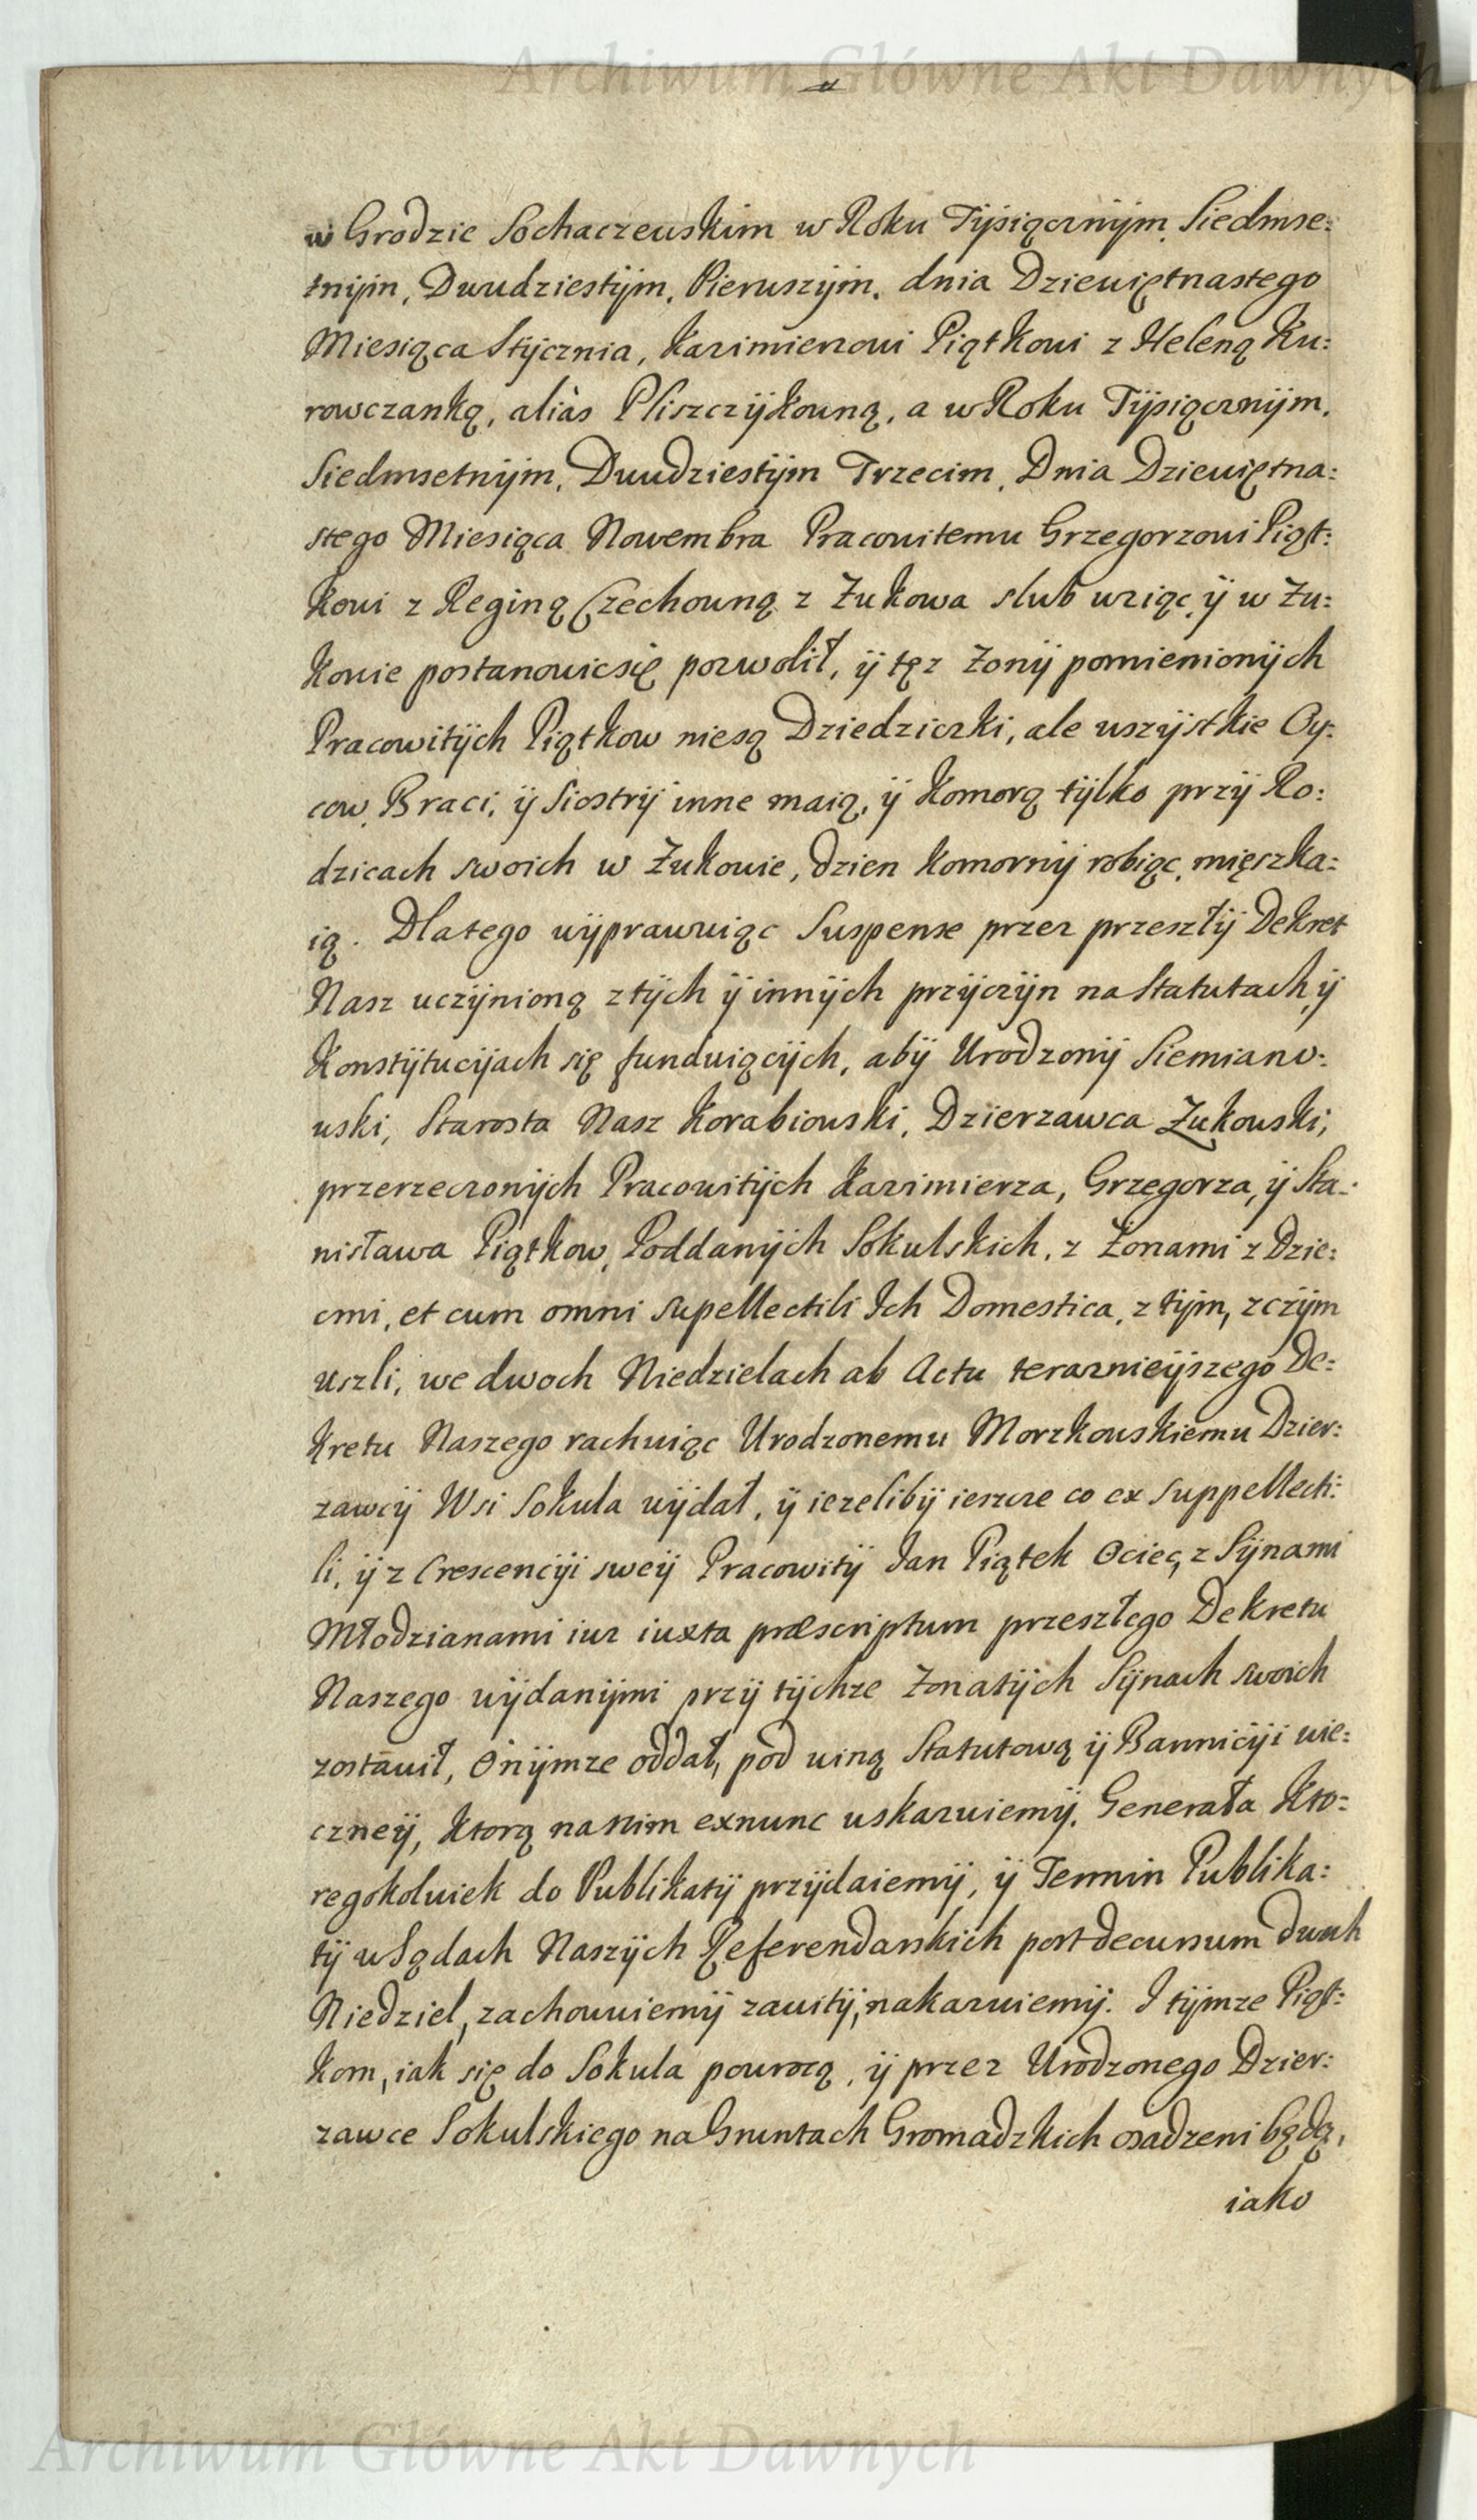 Archiwum Główne Akt Dawnych
w Grodzie Sochaczewskim w Roku Tysiącznym, Siedmse:
tnym, Dwudziestym, Pierwszym, dnia Dziewiętnastego
Miesiąca Stycznia, Kazimierzowi Piątkowi z Heleną Ku:
rowczanką, aliàs Pliszczykowną, a w Roku Tysiącznym,
Siedmsetnym, Dwudziestym Trzecim, Dnia Dziewiętna:
stego Miesiąca Nowembra Pracowitemu Grzegorzowi Piąt:
kowi z Reginą Czechowną z Żukowa slub wziąc, y w Żu:
kowie postanowicsię pozwolił, y tęz Żony pomienionych
Pracowitych Piątkow niesą Dziedziczki, ale wszystkie Oy:
cow, Braci, y Siostry inne maią, y Komorą tylko przy Ro:
dzicach swoich w Żukowie, dzien komorny robiąc, mięszka:
ią. Dlatego wyprawuiąc Suspense przez przeszły Dekret
Nasz uczynioną z tych y innych przyczyn na Statutach, y
Konstytucyach się funduiących, aby Urodzony Siemiano:
wski, Starosta Nasz Korabiowski, Dzierzawca Żukowski,
przerzeczonych Pracowitych Kazimierza, Grzegorza, y Sta:
nisława Piątkow, Poddanych Sokulskich, z Żonami z Dzie:
cmi, et cum omni supellectili Ich Domestica, z tym, z czym
uszli, we dwoch Niedzielach ab Actu teraznieyszego De:
kretu Naszego rachuiąc Urodzonemu Morzkowskiemu Dzier:
zawcy Wsi Sokula wydał, y iezeliby ieszcze co ex suppellecti:
li, y z Crescencyi swey Pracowity Jan Piątek Ociec, z Synami
Młodzianami iuz iuxta præscriptum przeszłego Dekretu
Naszego wydanymi przy tychze Żonatych Synach swoich
zostawił, Onymze oddał, pod winą Statutową y Bannicyi wie:
czney, ktorą na nim exnunc wskazuiemy. Generała kto:
regokolwiek do Publikaty przydaiemy, y Termin Publika:
ty w Sądach Naszych Referendarskich post decursum dwuh
Niedziel, zachowuiemy zawity, nakazuiemy. I tymze Piąt:
kom, iak się do Sokula powrocą, y przez Urodzonego Dzier:
zawce Sokulskiego na Gruntach Gromadzkich osadzeni będą,
iako
Archiwum Główne Akt Dawnych